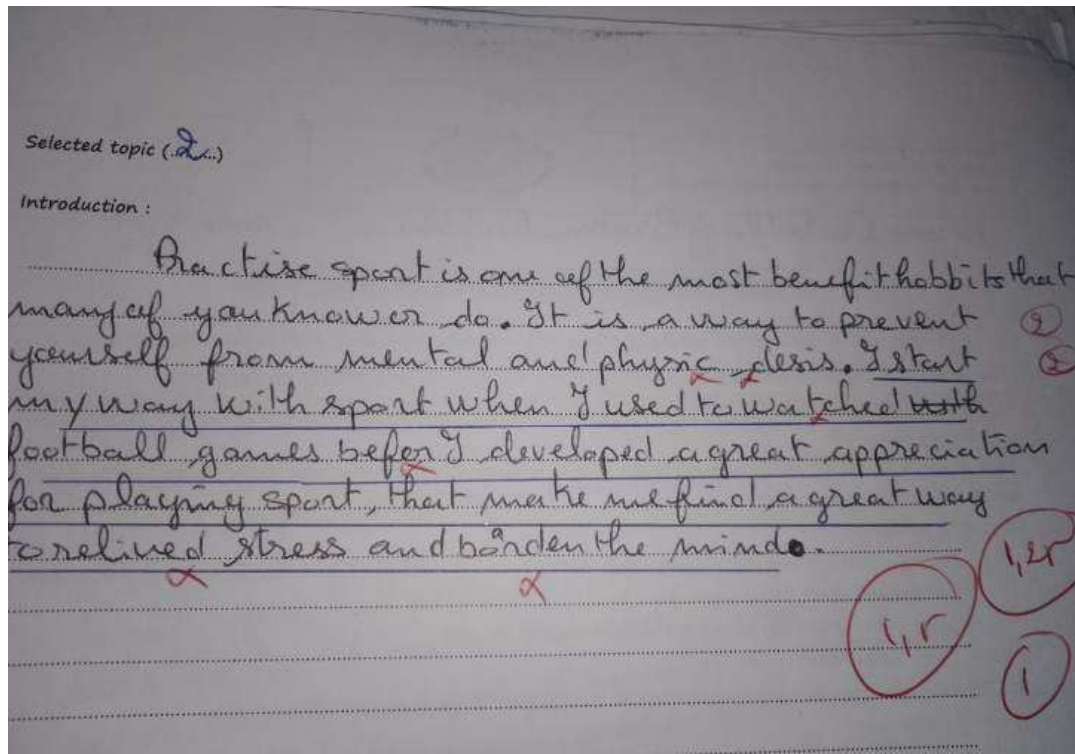 Selected topic (..2...)
Introduction :
Practise sport is one of the most benefit hobbits that
many of you know or do. It is a way to prevent
yourself from mental and physic desis. I start
my way with sport when I used to watched with
football games befor I developed a great appreciation
for playing sport, that make me find a great way
to relived stress and the mind.
2
2
1